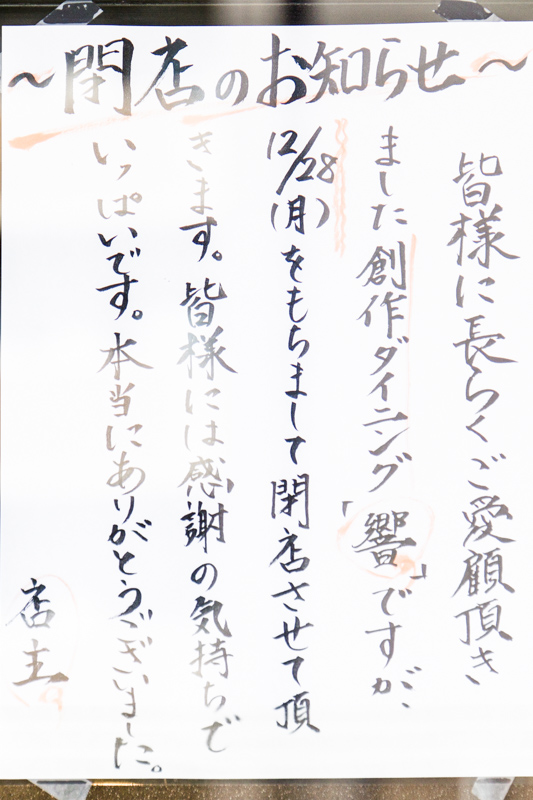 ～閉店のお知らせ～
皆様に長らくご愛顧頂き
ました創作ダイニング「響」ですが、
12/28(月)をもちまして閉店させて頂
きます。皆様には感謝の気持ちで
いっぱいです。本当にありがとうございました。
店主